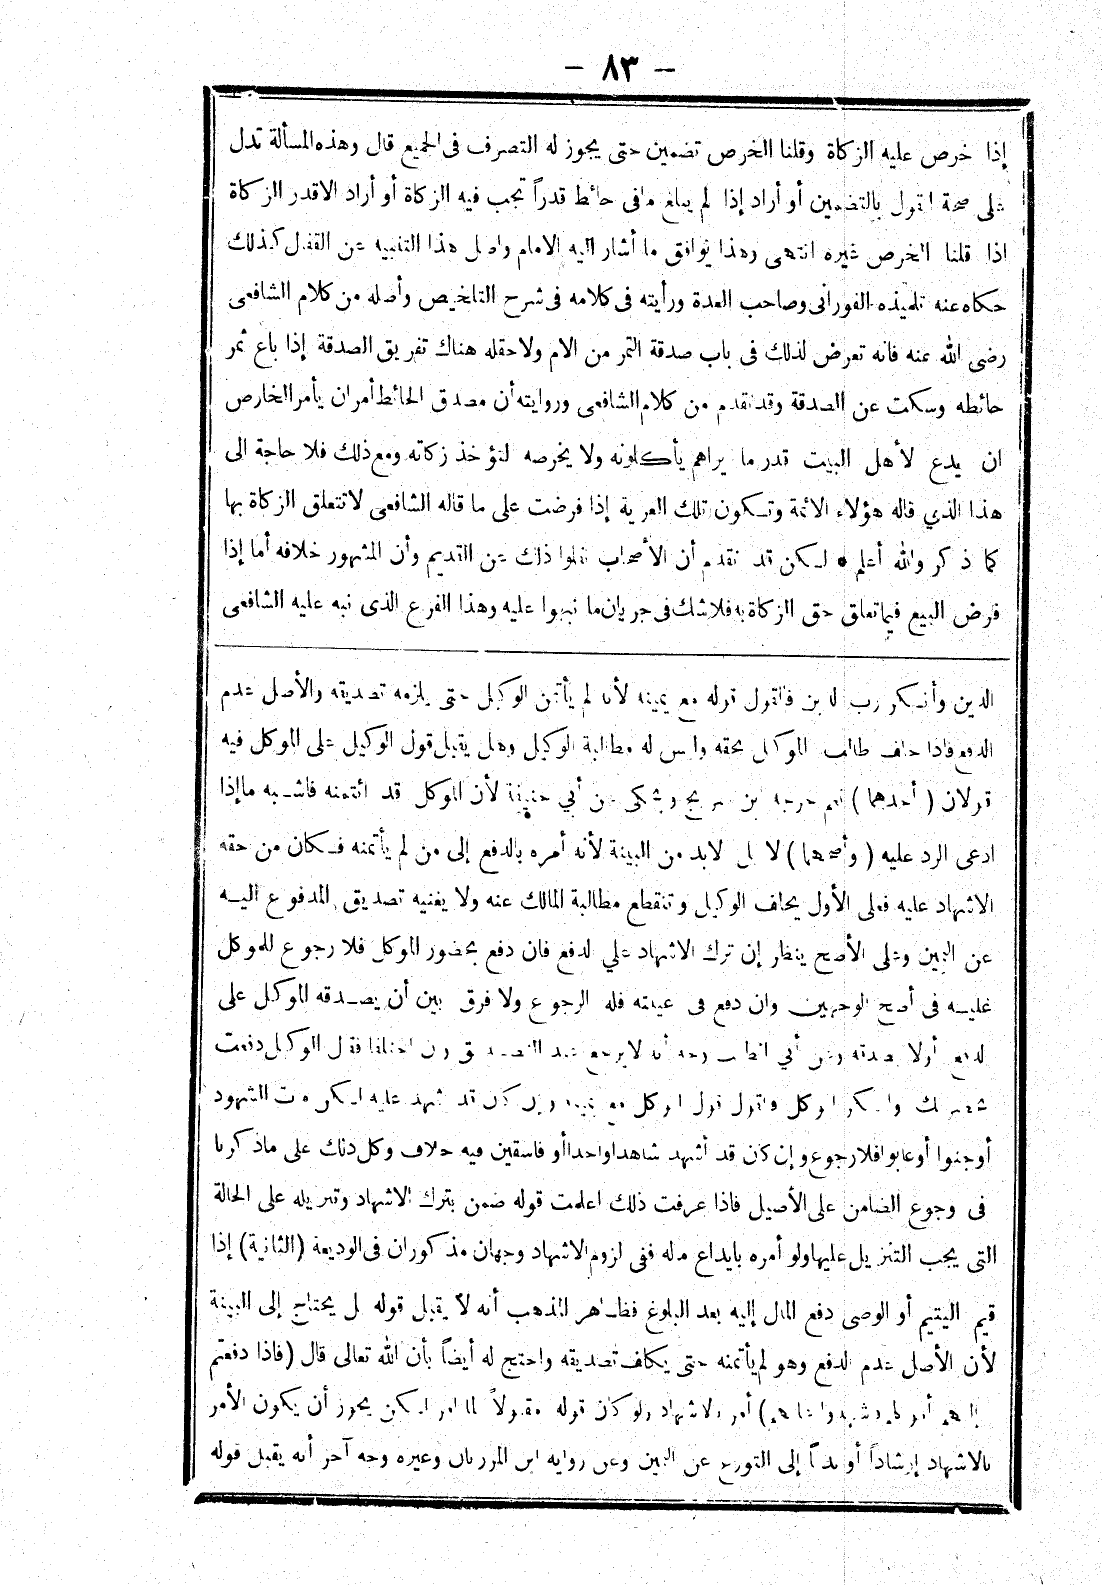 - ٨٣ -
إذا خرص عليه الزكاة وقلنا الخرص تضمين حتى يجوز له التصرف فى الجميع قال وهذه المسألة تدل
على صحة القول بالتضمين أو أراد إذا لم يبلغ مافى حائط قدراً تجب فيه الزكاة أو أراد الاقدر الزكاة
اذا قلنا الخرص غيره انتهى وهذا يوافق ما أشار اليه الامام واصل هذا التنبيه عن القفال كذلك
حكاه عنه تلميذه الفورانى وصاحب العدة ورأيته فى كلامه فى شرح التلخيص وأصله من كلام الشافعى
رضى الله عنه فانه تعرض لذلك فى باب صدقة الثمر من الام ولاحقله هناك تفريق الصدقة إذا باع ثمر
حائطه وسكت عن الصدقة وقدتقدم من كلام الشافعى وروايته أن مصدق الحائط أمران يأمر الخارص
ان يدع لأهل البيت قدر ما يراهم يأكلونه ولا يخرصه لتؤخذ زكاته ومع ذلك فلا حاجة الى
هذا الذي قاله هؤلاء الائمة وتكون تلك العرية إذا فرضت على ما قاله الشافعى لاتتعلق الزكاة بها
كما ذكر والله أعلم * لكن قد تقدم أن الأصحاب نقلوا ذلك عن القديم وأن المشهور خلافه أما إذا
فرض البيع فيما تعلق حق الزكاة به فلاشك فى جريان ما نبهوا عليه وهذا الفرع الذى نبه عليه الشافعى
الدين وأنكر رب الدين فالقول قوله مع يمينه لأنه لم يأتمن الوكيل حتى يلزمه تصديقه والأصل عدم
الدفع فاذا حلف طالب الموكل بحقه وليس له مطالبة الوكيل وهل يقبل قول الوكيل على الموكل فيه
قولان (أحدهما) نعم خرجه ابن سريج ويحكى عن أبي حنيفة لأن الموكل قد ائتمنه فاشبه ماإذا
ادعى الرد عليه (وأصحهما) لا بل لابد من البينة لأنه أمره بالدفع إلى من لم يأتمنه فكان من حقه
الاشهاد عليه فعلى الأول يحلف الوكيل وتنقطع مطالبة المالك عنه ولا يغنيه تصديق المدفوع اليه
عن اليمين وعلى الأصح ينظر إن ترك الاشهاد علي الدفع فان دفع بحضور الموكل فلا رجوع للموكل
عليه فى أصح الوجهين وان دفع فى غيبته فله الرجوع ولا فرق بين أن يصدقه الموكل على
الدفع أولا يصدقه وعن أبي الطيب وجه أنه لايرجع عند التصديق وان اختلفا فقال الوكيل دفعت
بحضرتك وأنكر الموكل فالقول قول الموكل مع يمينه وإن كان قد أشهد عليه لكن مات الشهود
أوجنوا أوغابوا فلارجوع وإن كان قد أشهد شاهدا واحدا أو فاسقين فيه خلاف وكل ذلك على ماذكرنا
فى رجوع الضامن على الأصيل فاذا عرفت ذلك اعلمت قوله ضمن بترك الاشهاد وتنزيله على الحالة
التى يجب التنزيل عليها ولو أمره بايداع ماله ففى لزوم الاشهاد وجهان مذكوران فى الوديعة (الثانية) إذا
قيم اليتيم أو الوصى دفع المال إليه بعد البلوغ فظاهر المذهب أنه لا يقبل قوله بل يحتاج إلى البينة
لأن الأصل عدم الدفع وهو لم يأتمنه حتى يكلف تصديقه واحتج له أيضاً بأن الله تعالى قال (فاذا دفعتم
إليهم أموالهم فأشهدوا عليهم) أمر بالاشهاد ولو كان قوله مقبولاً لما أمر لكن يجوز أن يكون الأمر
بالاشهاد إرشاداً أو ندباً إلى التورع عن اليمين وعن رواية ابن المرزبان وغيره وجه آخر أنه يقبل قوله